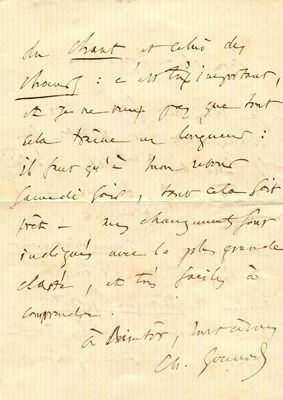 du Chant et celui des
Chœurs : c'est très important,
et je ne veux pas que tout
cela traîne en longueur :
il faut qu'à mon retour
Samedi soir, tout cela soit
prêt — mes changements sont
indiqués avec la plus grande
clarté, et très faciles à
comprendre.
à Bientôt, tout à vous
Ch. Gounod